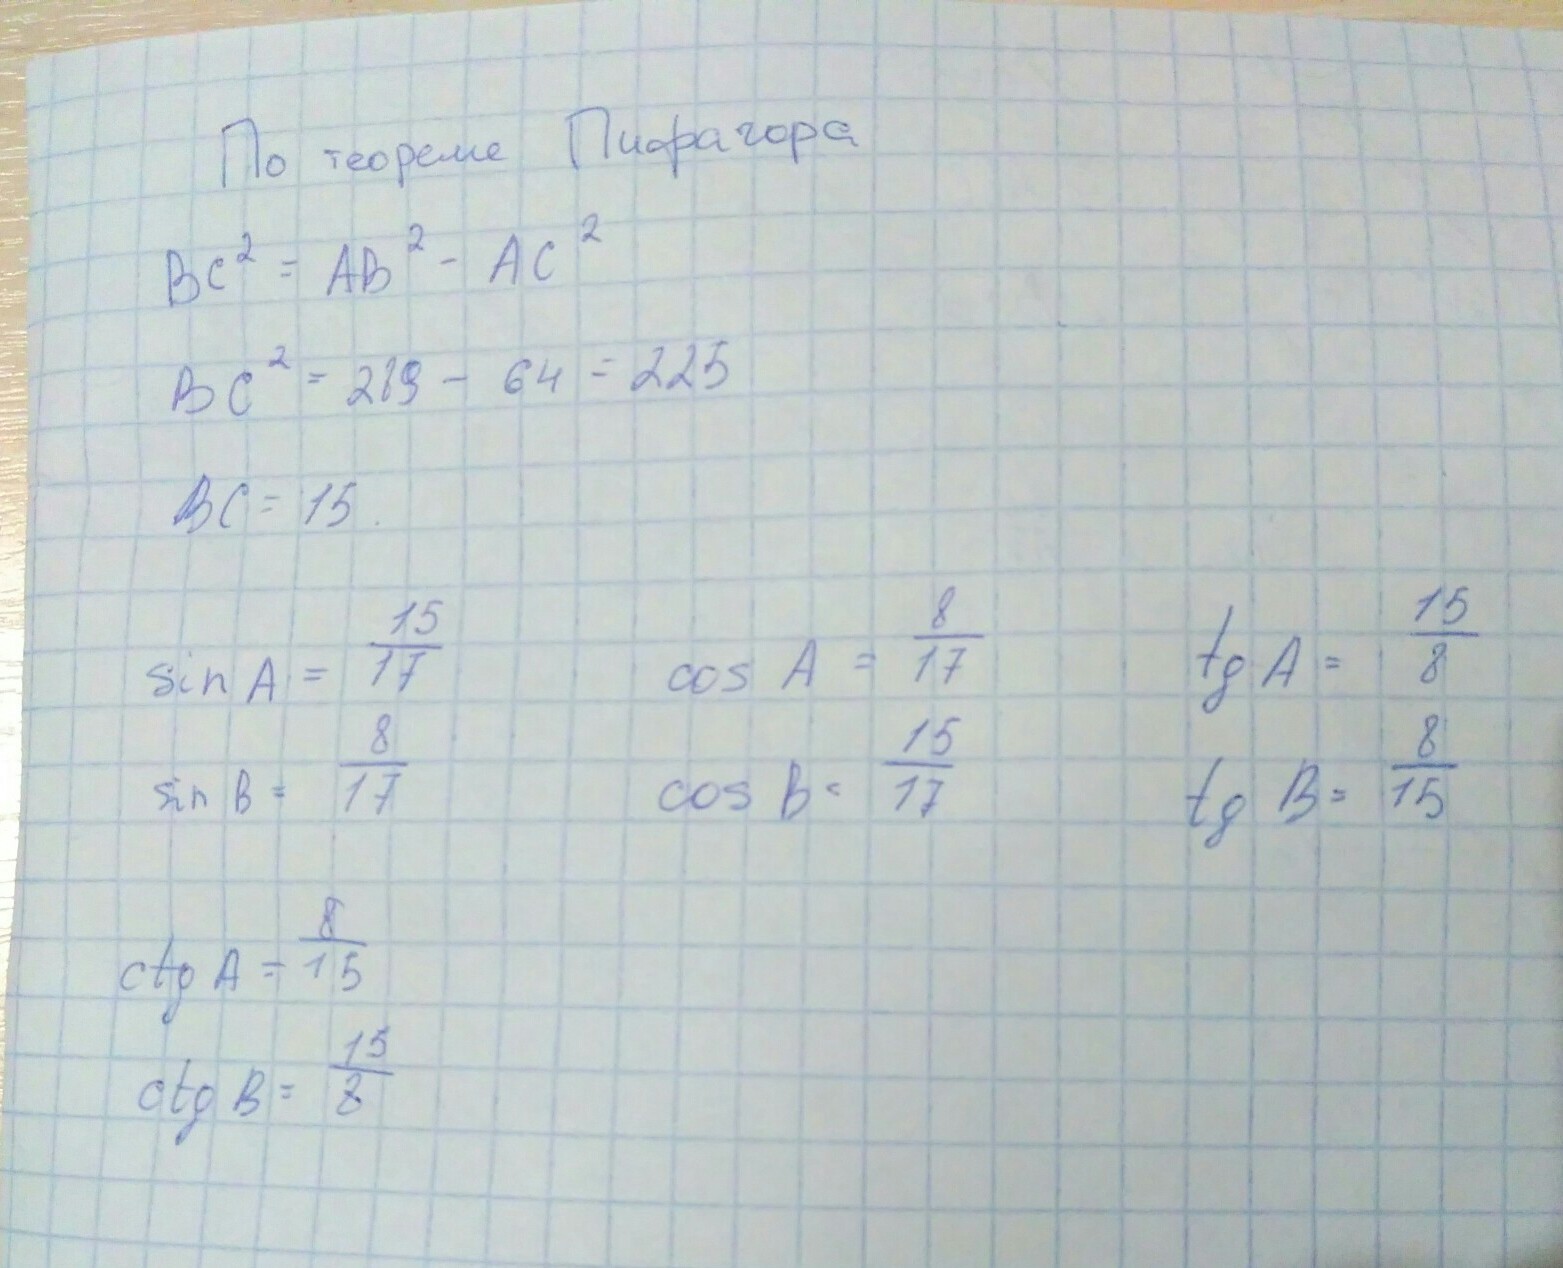 По теореме Пифагора
BC² = AB² - AC²
BC² = 289 - 64 = 225
BC = 15.
sin A = 15/17 cos A = 8/17 tg A = 15/8
sin B = 8/17 cos B = 15/17 tg B = 8/15
ctg A = 8/15
ctg B = 15/8